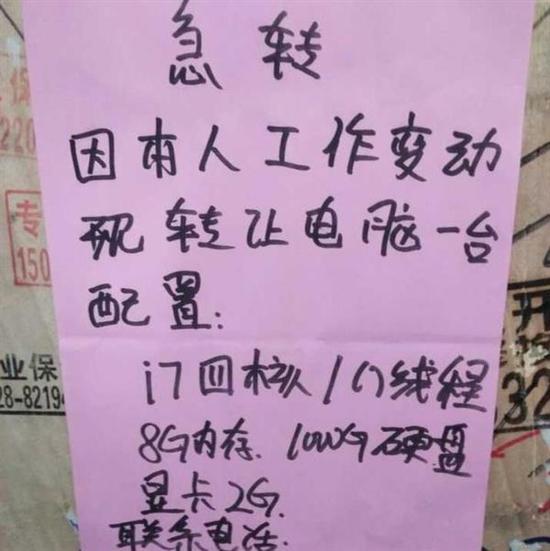 急转
因本人工作变动
现转让电脑一台
配置:
i7四核八线程
8G内存. 1000G硬盘
显卡2G.
联系电话:
专
150
业保
28-82194
220
保
开
32